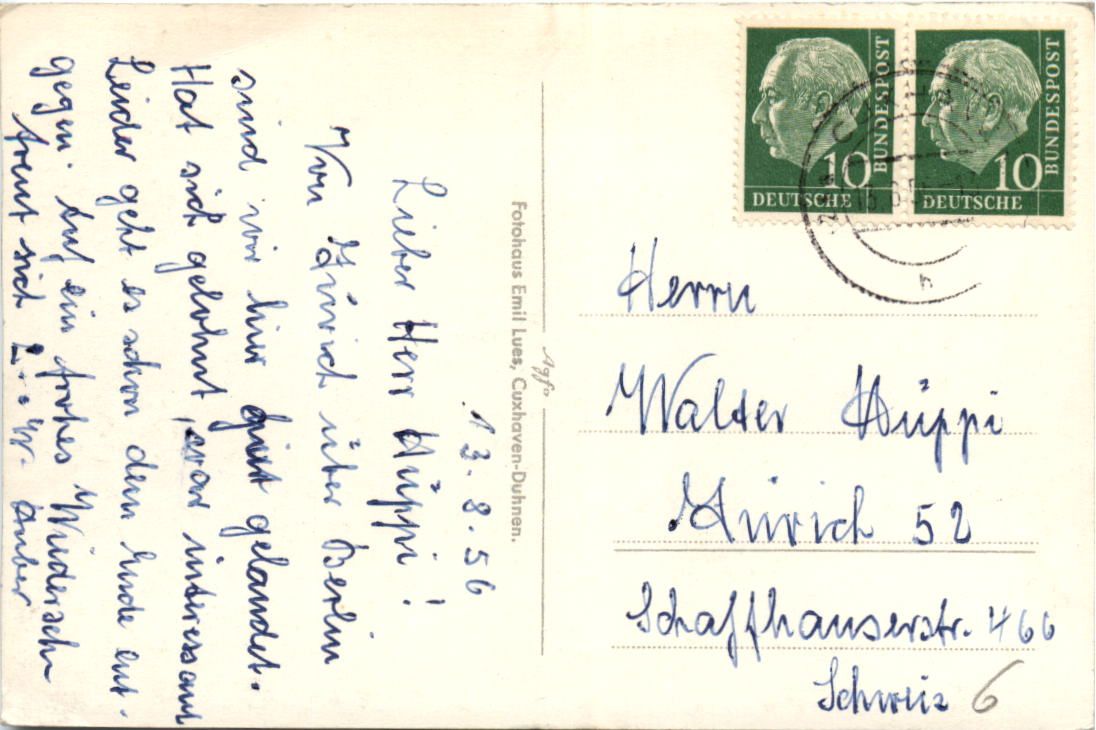 13.8.56
Lieber Herr Hüppi!
Von Zürich über Berlin
sind wir hier gut gelandet.
Hat sich gelohnt, war interessant
Leider geht es schon dem Ende ent-
gegen. Auf ein frohes Wiedersehn
freut sich
Fotohaus Emil Lues, Cuxhaven-Duhnen.
Agfa
DEUTSCHE BUNDESPOST 10
DEUTSCHE BUNDESPOST 10
Herrn
Walter Hüppi
Zürich 52
Schaffhauserstr. 466
Schweiz 6